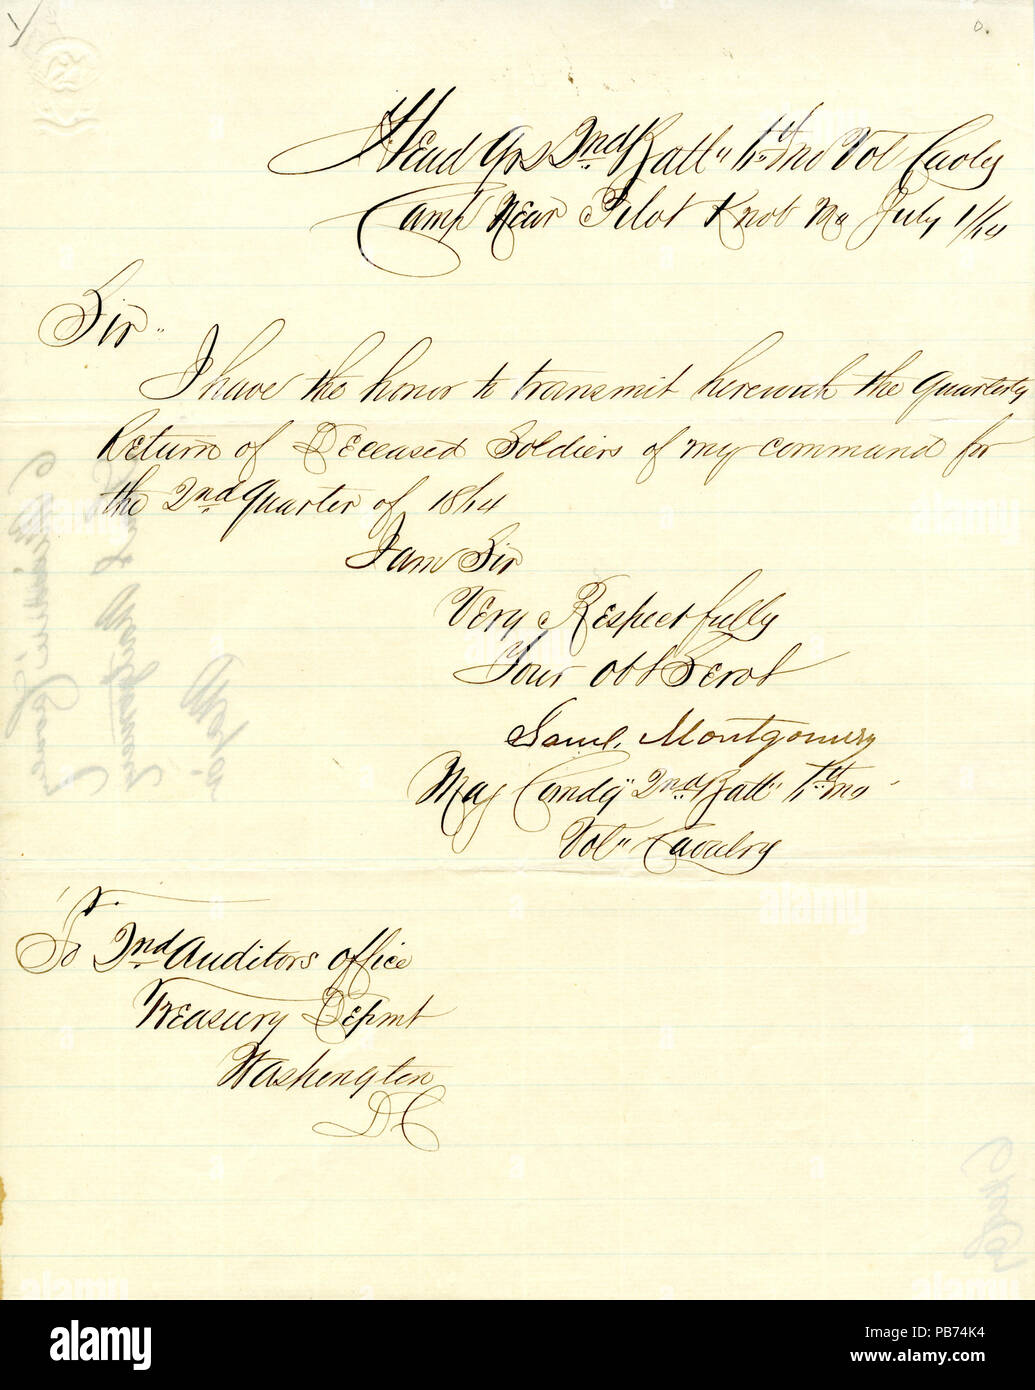 Head Qrs 2nd Batl" 6th Mo Vol Cavly
Camp Near Pilot Knob Mo July 1/64
Sir"
I have the honor to transmit herewith the Quarterly
Return of Deceased Soldiers of my command for
the 2nd Quarter of 1864
I am Sir
Very Respectfully
Your obt Servt
Saml. Montgomery
Maj Comdg" 2nd Batl" 6th Mo
Vol" Cavalry
To 2nd Auditors office
Treasury Depmt
Washington
D C
alamy
Image ID: PB74K4
www.alamy.com